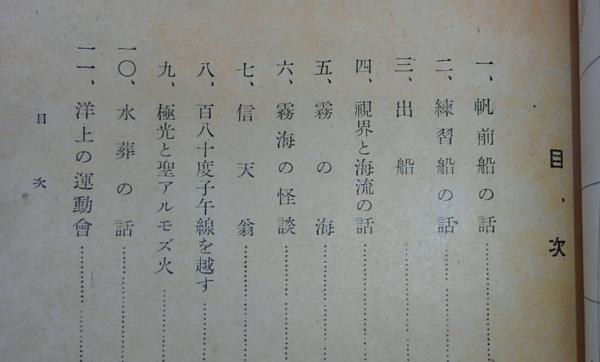 目次
一、帆前船の話
二、練習船の話
三、出船
四、視界と海流の話
五、霧の海
六、霧海の怪談
七、信天翁
八、百八十度子午線を越す
九、極光と聖アルモズ火
一〇、水葬の話
一一、洋上の運動會
目次